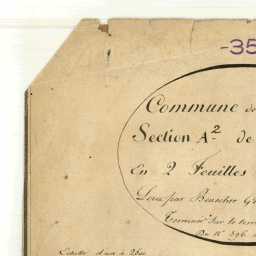 -35
Commune de
Section A² de
En 2 Feuilles
Levé par
Terminé sur le terr
Du N° 596
Echelle d'un à 2500